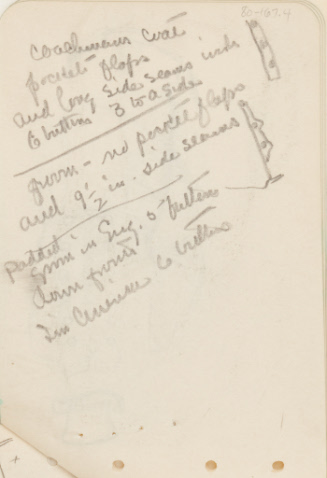 80-167.4
coachmans coat
pocket flaps
and long side seams
6 buttons 3 to a side
groom - no pocket flaps
and 9 1/2 in. side seams
Padded
groom in Eng. 5 buttons
down front
in 6 buttons